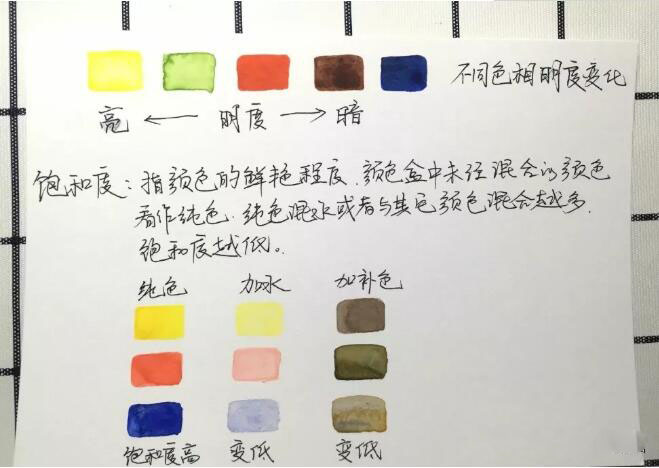 不同色相明度变化
亮 ← 明度 → 暗
饱和度：指颜色的鲜艳程度.颜色盒中未经混合的颜色
看作纯色.纯色混水或者与其它颜色混合越多.
饱和度越低。
纯色 加水 加补色
饱和度高 变低 变低